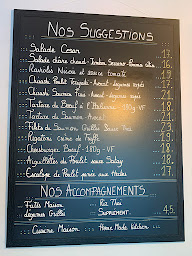 Nos Suggestions
Salade César 17.
Salade chèvre chaud - Jambon Serrano - Pomme rôtie 16.
Raviolis Niçois et sauce tomate 19.
Chiapati Poulet Teriyaki - Avocat - légumes rapés 17.
Chiapati Saumon Frais - Avocat - légumes rapés
Tartare de Bœuf à l'Italienne - 180g - VF 18.
Tartare de Saumon - Avocat
Filet de Saumon Grillé Sauce
Rigatoni crème de truffe
Cheeseburger Bœuf - 180g - VF 18.
Aiguillettes de Poulet sauce Satay 18.
Escalope de Poulet panée aux Herbes 17.
Nos Accompagnements
Frites Maison Riz Thaï
légumes Grillés Supplément 4,5
Cuisine Maison Home Made kitchen